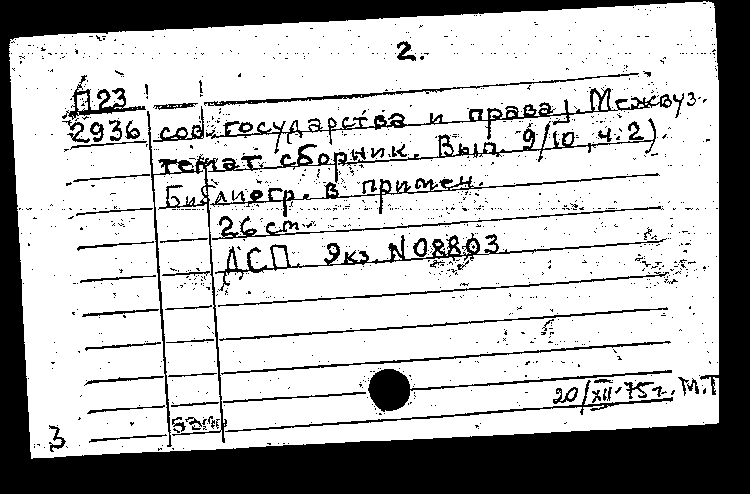 2.
П23
2936 сов. государства и права]. Межвуз.
темат. сборник. Вып. 9/10, ч. 2).
Библиогр. в примеч.
26 cm.
ДСП. Экз. N 08803.
20/XII-75г. М.Т
3